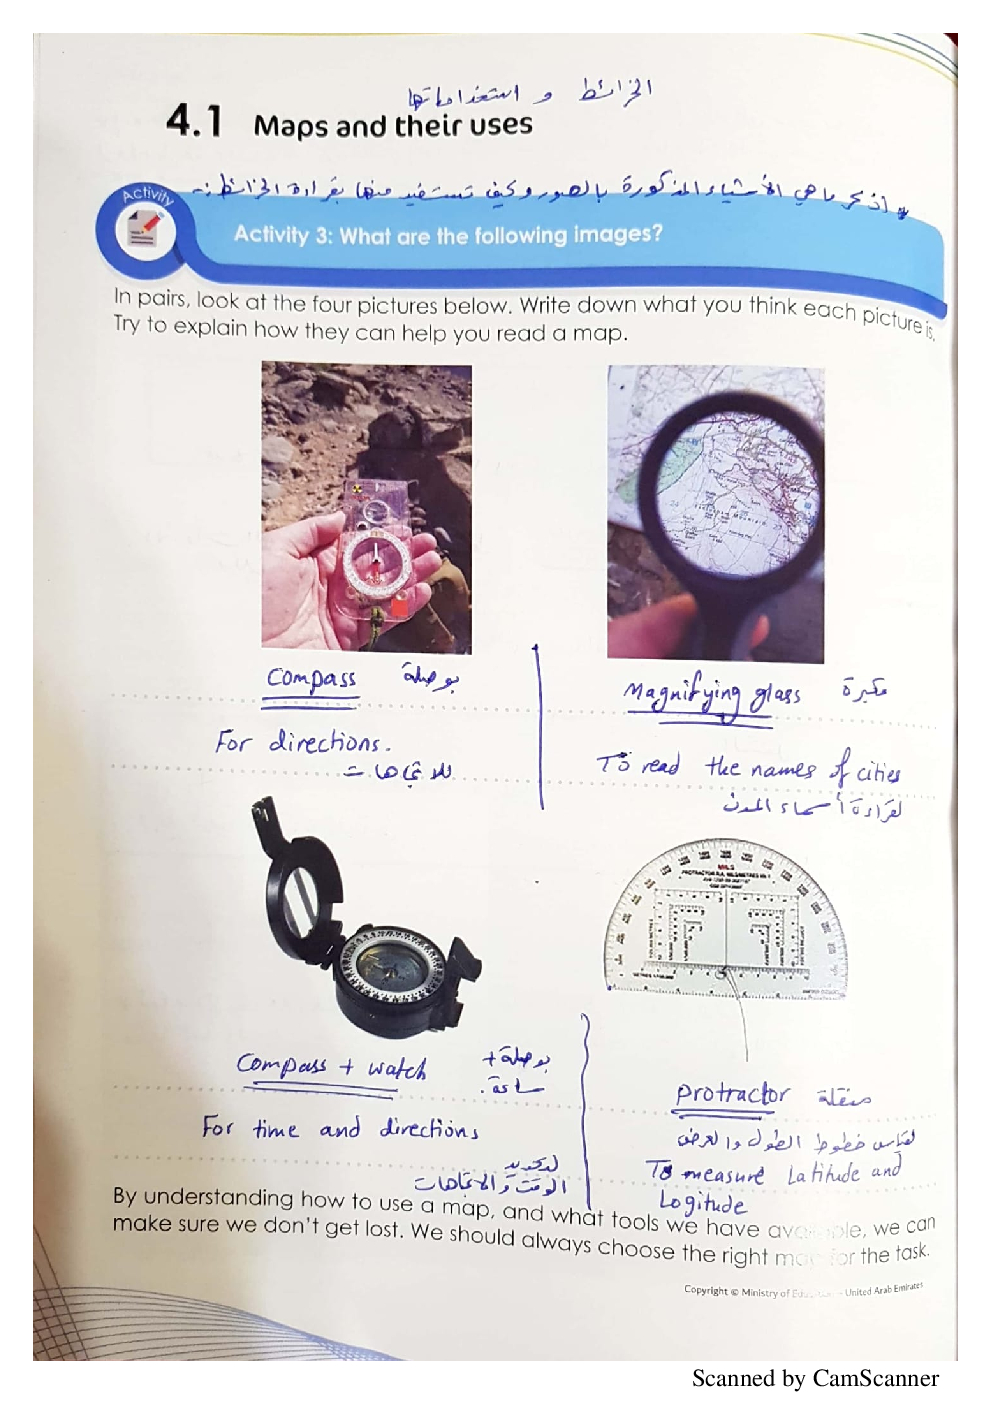 الخرائط و استخداماتها
4.1 Maps and their uses
* اذكر ما هي الأشياء المذكورة بالصور وكيف تستفيد منها بقراءة الخرائط :-
Activity
Activity 3: What are the following images?
In pairs, look at the four pictures below. Write down what you think each picture is.
Try to explain how they can help you read a map.
Compass بوصلة
For directions.
للاتجاهات
Magnifying glass مكبرة
To read the names of cities
لقراءة أسماء المدن
Compass + watch بوصلة +
ساعة.
For time and directions
لتحديد
الوقت والاتجاهات
MILS
protractor منقلة
لقياس خطوط الطول والعرض
To measure Latitude and
Logitude
By understanding how to use a map, and what tools we have available, we can
make sure we don't get lost. We should always choose the right map for the task.
Copyright © Ministry of Education - United Arab Emirates
Scanned by CamScanner